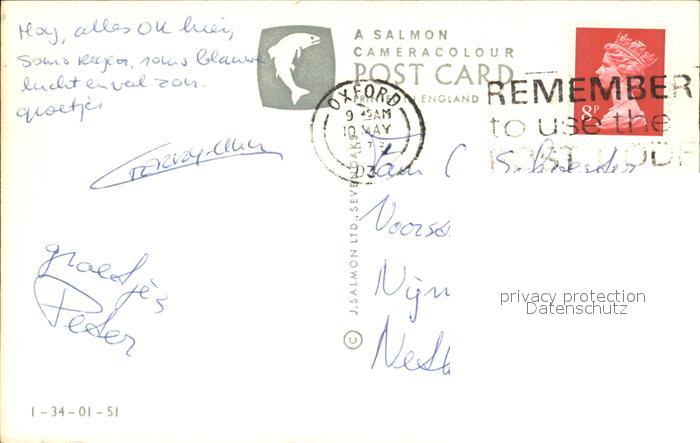 Hoy, alles OK hier,
Soms regen, soms blauwe
lucht en veel zon.
groetjes
groetjes
Peter
1-34-01-51
A SALMON
CAMERACOLOUR
POST CARD
PRINTED IN ENGLAND
© J. SALMON LTD., SEVENOAKS
OXFORD
9 AM
10 MAY
8P
REMEMBER
to use the
POST CODE
Fam
Voorsc
Nijm
Neth
privacy protection
Datenschutz